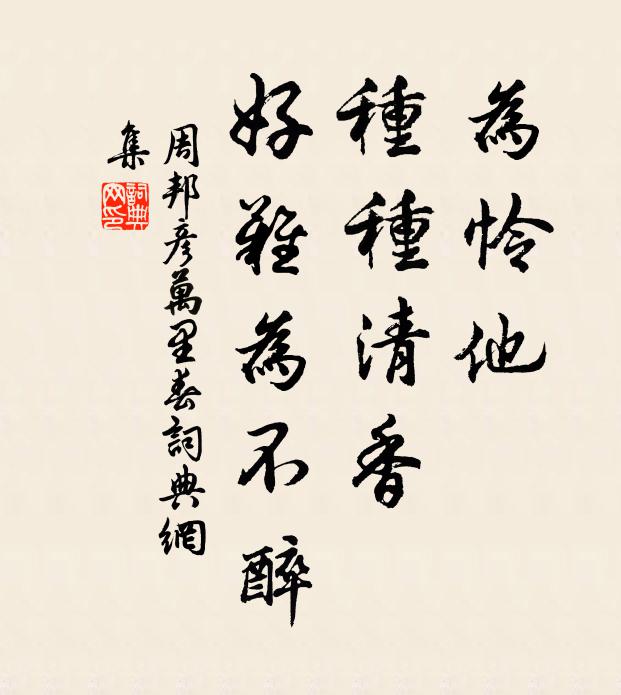 為怜他
種種清香
好難為不醉
周邦彥萬里春詞典網
集
詞典
网印